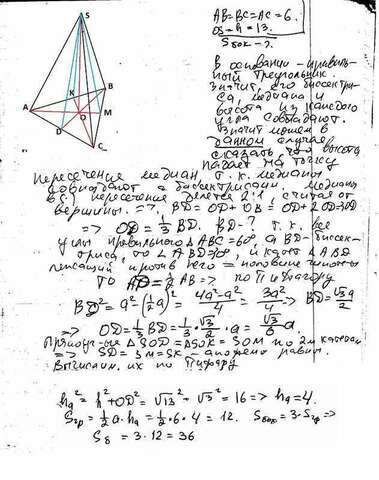 S
A
B
C
D
K
M
O
AB=BC=AC=6.
OS=h=√13.
Sбок-?.
В основании - правиль-
ный треугольник.
Значит, его биссектри-
са, медиана и
высота из каждого
угла совпадают.
Значит можем в
данном случае
сказать, что высота
падает на точку
пересечение медиан, т.к. медианы
совпадают с биссектрисами. медианы
в (·) пересечение делятся 2:1 считая от
вершины. =>, BD = OD + OB = OD + 2OD = 3OD
=> OD = 1/3 BD. BD-? т.к. все
углы правильного ΔABC = 60°, а BD - биссек-
триса, то ∠ABD = 30°, и катет ΔABD
лежащий против него = половине гипотенузы
то AD = 1/2 AB => по Пифагору
BD² = a² - (1/2 a)² = (4a² - a²)/4 = 3a²/4 => BD = √3a/2
=> OD = 1/3 BD = 1/3 · √3/2 · a = √3/6 a.
Прямоуг-ые ΔSOD = ΔSOK = SOM по 2м катетам
=> SD = SM = SK - апофемы равны.
Вычислим их по Пифагору
ha² = h² + OD² = √13² + √3² = 16 => ha = 4.
Sгр = 1/2 a · ha = 1/2 · 6 · 4 = 12. Sбок = 3 · Sгр =>
Sб = 3 · 12 = 36